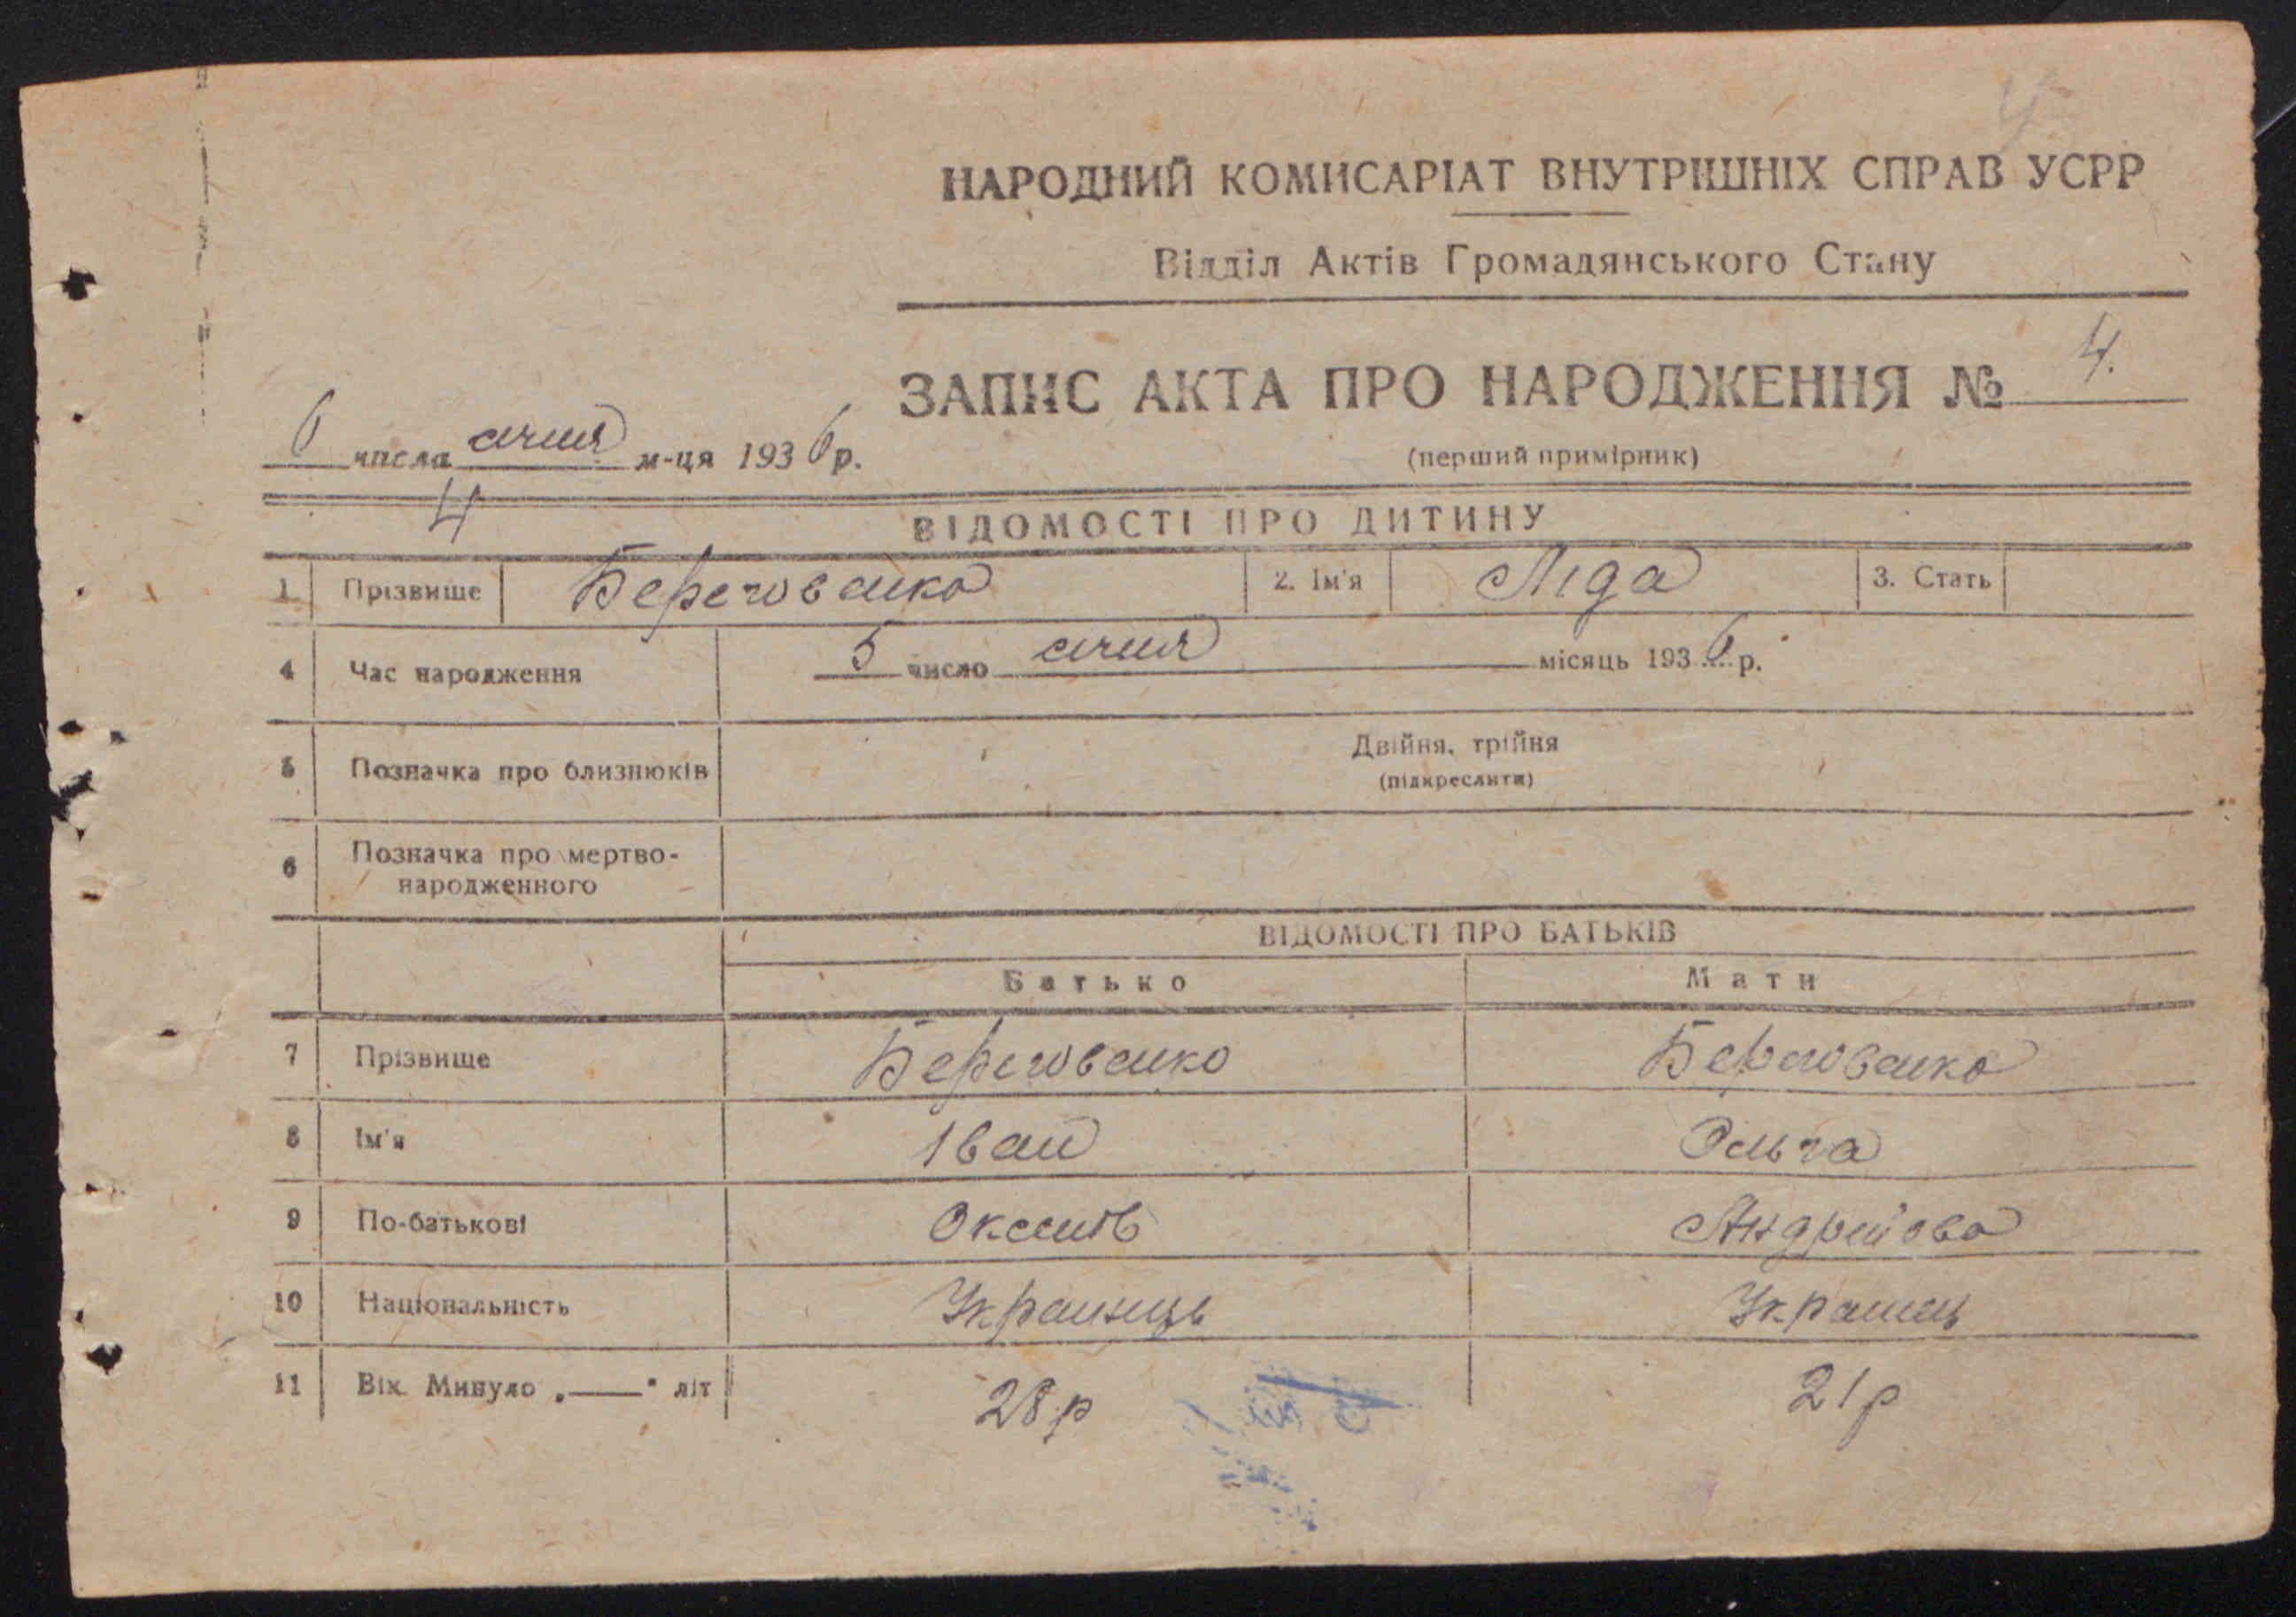 4
НАРОДНИЙ КОМИСАРІАТ ВНУТРІШНІХ СПРАВ УСРР
Відділ Актів Громадянського Стану
ЗАПИС АКТА ПРО НАРОДЖЕННЯ № 4.
(перший примірник)
6 числа січня м-ця 1936 р.
4
ВІДОМОСТІ ПРО ДИТИНУ
1 Прізвище Береговенко 2. Ім'я Ліда 3. Стать
4 Час народження 5 число січня місяць 1936 р.
5 Позначка про близнюків Двійня, трійня
(підкреслити)
6 Позначка про мертво-
народженного
ВІДОМОСТІ ПРО БАТЬКІВ
Батько Мати
7 Прізвище Береговенко Береговенко
8 Ім'я Іван Ольга
9 По-батькові Андрийова
10 Національність Украинець Украинець
11 Вік. Минуло „—" літ 28 р 21 р